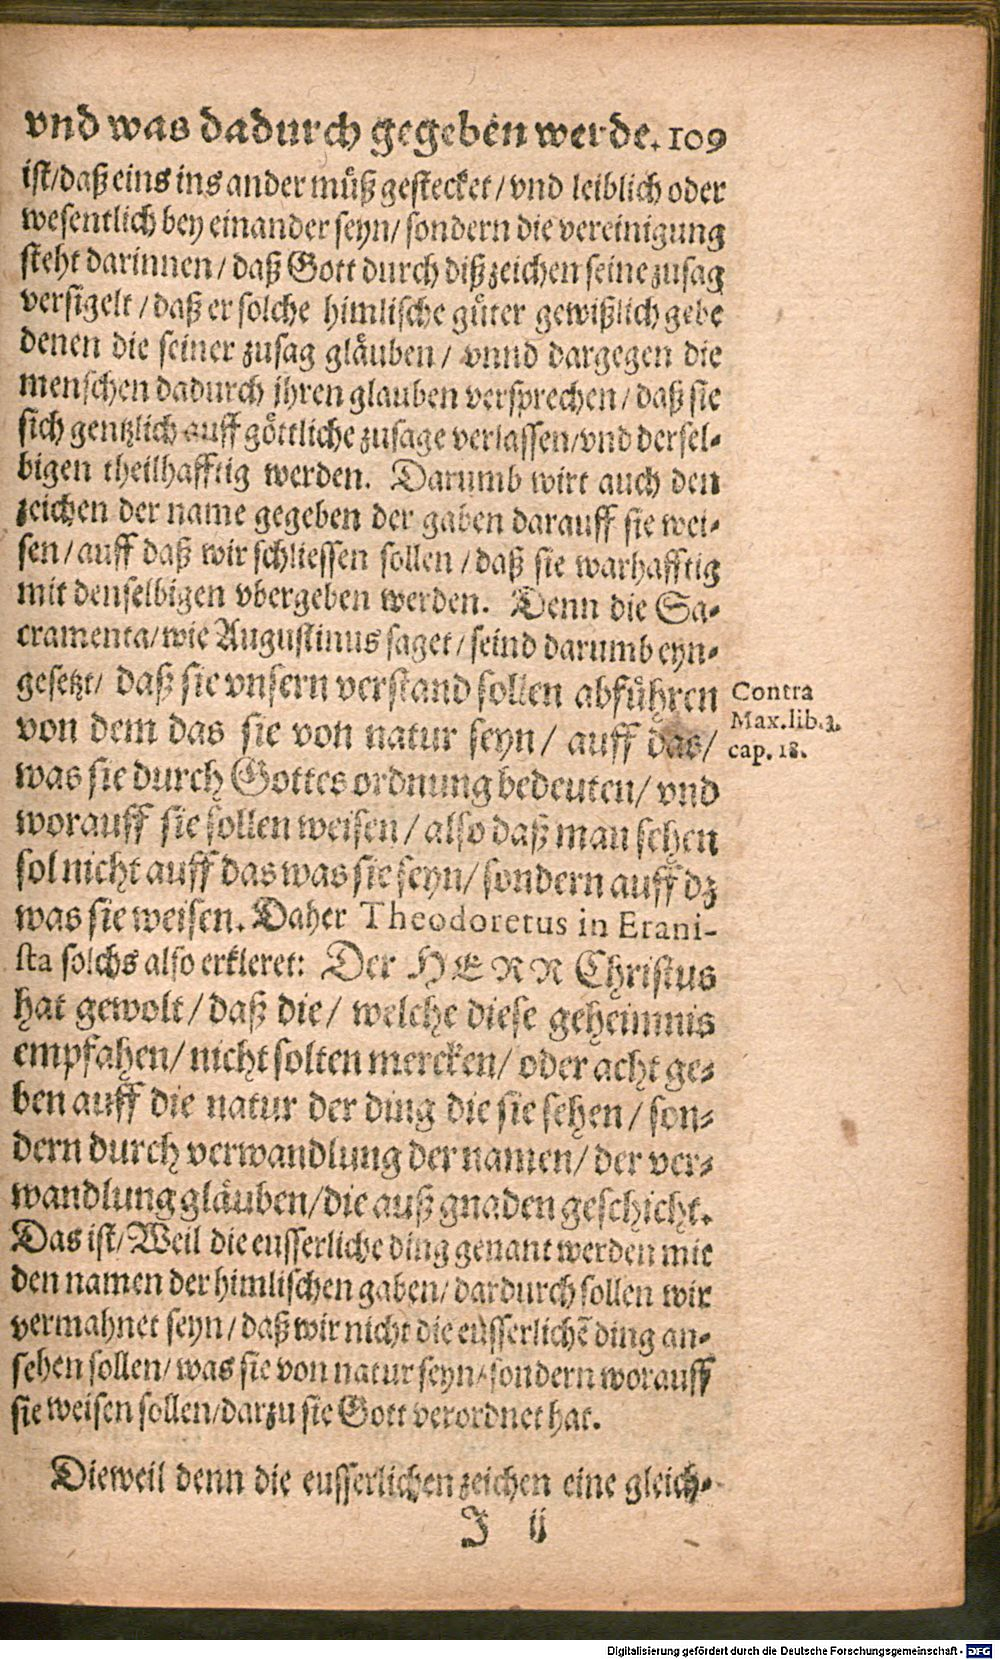 vnd was dadurch gegeben werde. 109
ist/daß eins ins ander müß gestecket/vnd leiblich oder
wesentlich bey einander seyn/sondern die vereinigung
steht darinnen/daß Gott durch diß zeichen seine zusag
versigelt/daß er solche himlische güter gewißlich gebe
denen die seiner zusag gläuben/vnnd dargegen die
menschen dadurch ihren glauben versprechen/daß sie
sich gentzlich auff göttliche zusage verlassen/vnd dersel-
bigen theilhafftig werden. Darumb wirt auch den
zeichen der name gegeben der gaben darauff sie wei-
sen/auff daß wir schliessen sollen/daß sie warhafftig
mit denselbigen vbergeben werden. Denn die Sa-
cramenta/wie Augustinus saget/seind darumb eyn-
gesetzt/daß sie vnsern verstand sollen abführen
Contra
von dem das sie von natur seyn/auff das/
Max.lib.3.
was sie durch Gottes ordnung bedeuten/vnd
cap. 18.
worauff sie sollen weisen/also daß man sehen
sol nicht auff das was sie seyn/sondern auff dz
was sie weisen. Daher Theodoretus in Erani-
sta solchs also erkleret: Der HERR Christus
hat gewolt/daß die/welche diese geheimnis
empfahen/nicht solten mercken/oder acht ge-
ben auff die natur der ding die sie sehen/son-
dern durch verwandlung der namen/der ver-
wandlung gläuben/die auß gnaden geschicht.
Das ist/Weil die eusserliche ding genant werden mit
den namen der himlischen gaben/dardurch sollen wir
vermahnet seyn/daß wir nicht die eusserlichē ding an-
sehen sollen/was sie von natur seyn/sondern worauff
sie weisen sollen/darzu sie Gott verordnet hat.
Dieweil denn die eusserlichen zeichen eine gleich-
J ij
Digitalisierung gefördert durch die Deutsche Forschungsgemeinschaft - DFG